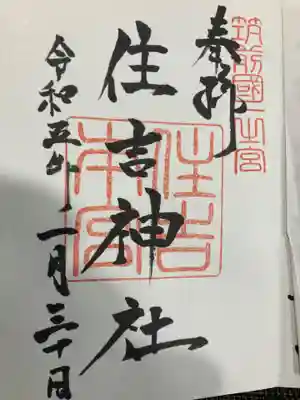 筑前國一之宮
奉拝
住吉神社
住吉本宮
令和五年 一月三十日